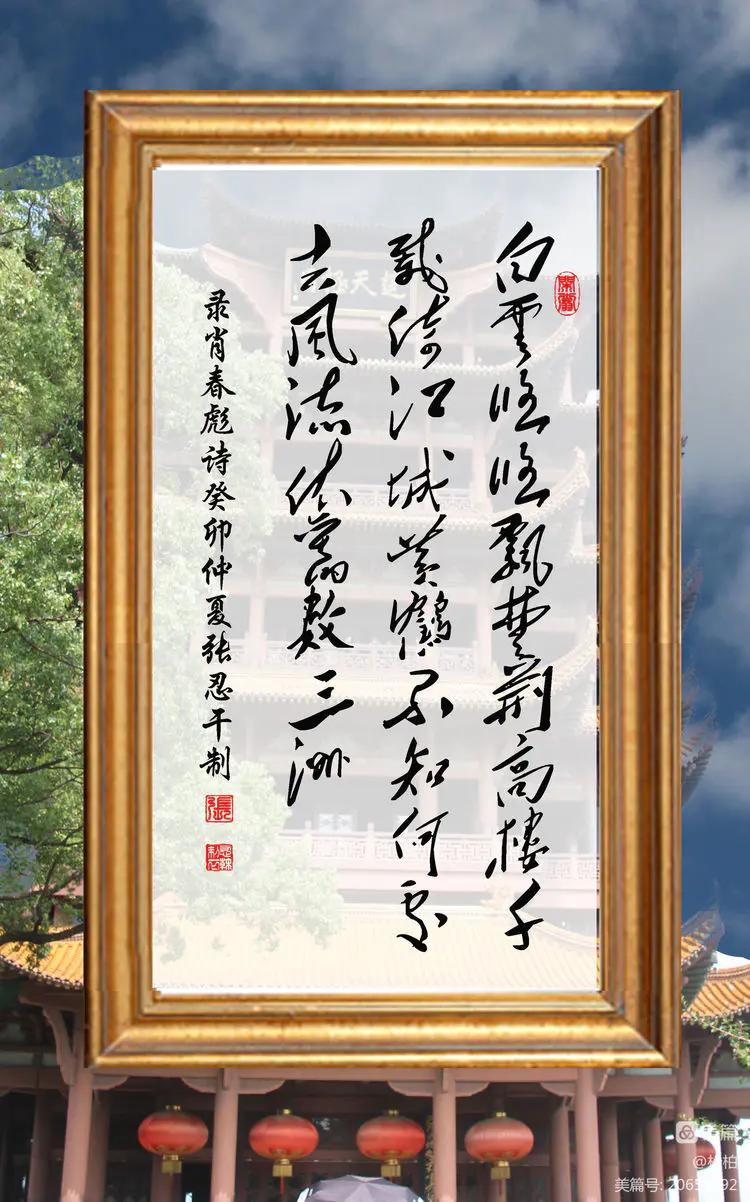 白雲悠悠飘楚荆高楼千
载倚江城黄鹤不知何处
去风流依舊数三洲
录肖春彪诗癸卯仲夏张忍干制
張
美篇
美篇号: